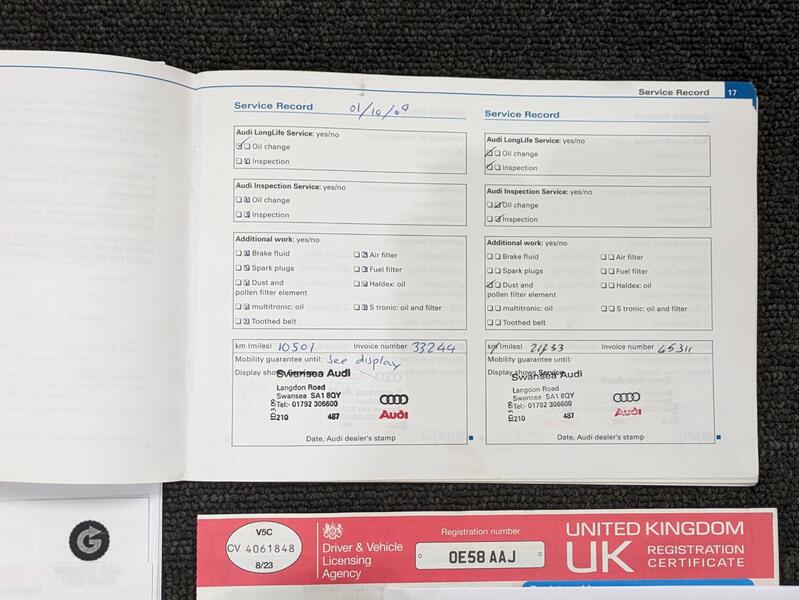 Service Record 17
Service Record 01/10/09
Audi LongLife Service: yes/no
Oil change
Inspection
Audi Inspection Service: yes/no
Oil change
Inspection
Additional work: yes/no
Brake fluid
Air filter
Spark plugs
Fuel filter
Dust and
pollen filter element
Haldex: oil
multitronic: oil
S tronic: oil and filter
Toothed belt
km (miles) 10501 Invoice number 33244
Mobility guarantee until: See display
Display shows Service
Swansea Audi
Langdon Road
Swansea SA1 8QY
Tel:- 01792 306600
210 487
Audi
Date, Audi dealer's stamp
Service Record
Audi LongLife Service: yes/no
Oil change
Inspection
Audi Inspection Service: yes/no
Oil change
Inspection
Additional work: yes/no
Brake fluid
Air filter
Spark plugs
Fuel filter
Dust and
pollen filter element
Haldex: oil
multitronic: oil
S tronic: oil and filter
Toothed belt
km (miles) Invoice number 45311
Mobility guarantee until:
Display shows Service
Swansea Audi
Langdon Road
Swansea SA1 8QY
Tel:- 01792 306600
210 487
Audi
Date, Audi dealer's stamp
G
V5C
CV 4061848
8/23
Driver & Vehicle
Licensing
Agency
Registration number
OE58 AAJ
UNITED KINGDOM
UK REGISTRATION
CERTIFICATE